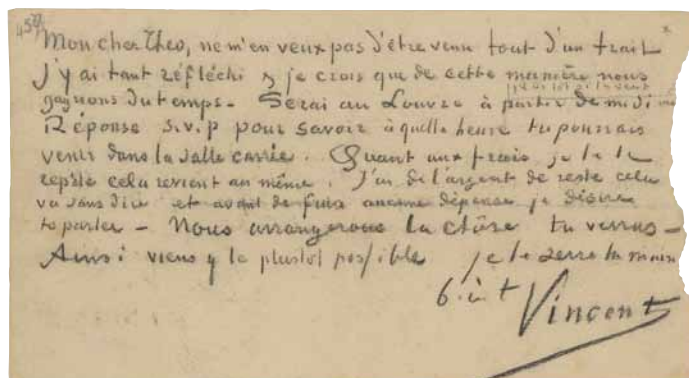 459
Mon cher Theo, ne m'en veux pas d'être venu tout d'un trait
j'y ai tant réfléchi & je crois que de cette manière nous
gagnons du temps – Serai au Louvre à partir de midi
ou plus tot si tu veux
Réponse s.v.p. pour savoir à quelle heure tu pourrais
venir dans la salle carrée. Quant aux frais, je te le
repète cela revient au même. J'ai de l'argent de reste cela
va sans dire et avant de faire aucune dépense je désire
te parler – Nous arrangerons la chôse tu verras –
Ainsi viens y le plustot possible. je te serre la main
b. à t
Vincent